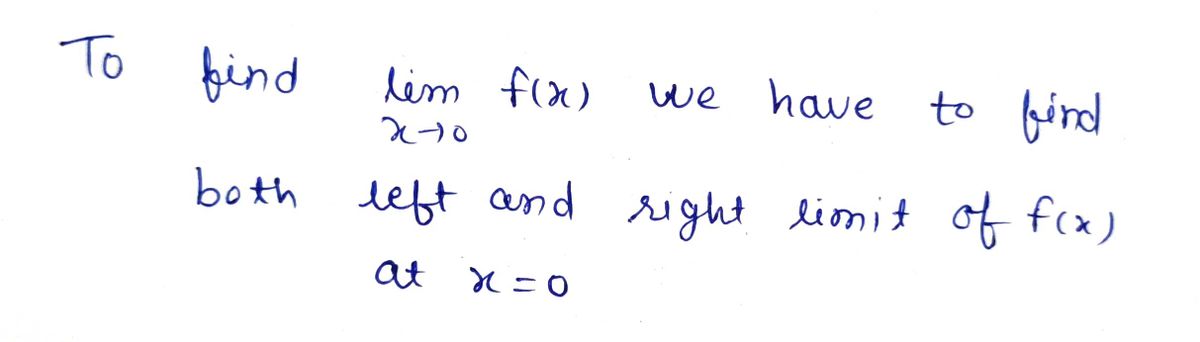 To find lim f(x) we have to find
x→0
both left and right limit of f(x)
at x=0